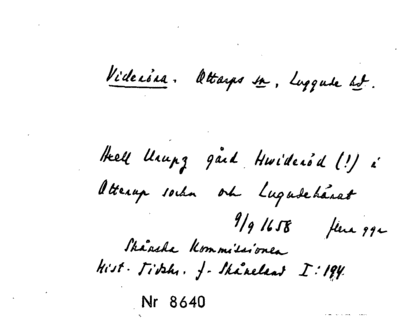 Videröra. Ottarps sn, Luggude hd.
Axell Urupz gård Hwideröd (!) i
Otterup sochn och Lugudehärat
9/9 1658 flera ggr
Skånska Kommissionen
Hist. Tidskr. f. Skåneland I:194.
Nr 8640